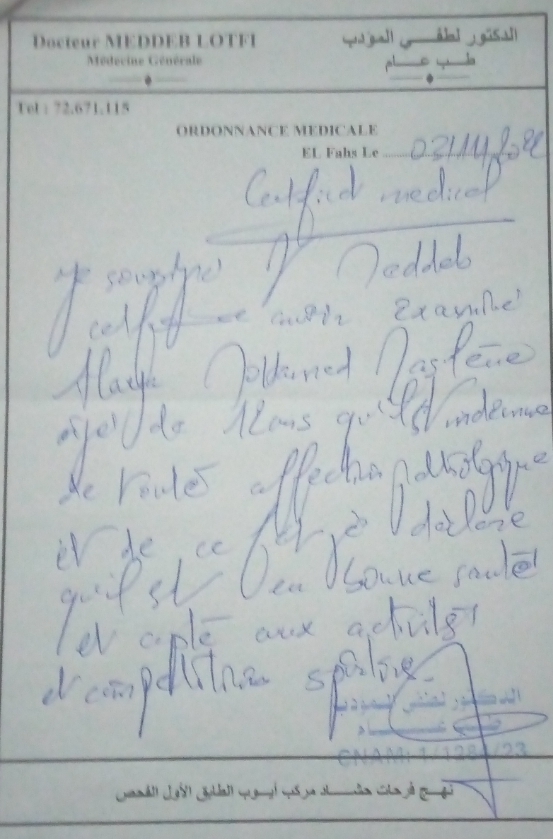 Docteur MEDDEB LOTFI
الدكتور لطفـــي المؤدب
Médecine Générale
طـــب عـــام
Tel : 72.671.115
ORDONNANCE MEDICALE
EL Fahs Le
Certificat medical
Je soussigné Dr Meddeb
certifie avoir examiné
Mohamed
agé de 12 ans qu'il est indemne
de toute affection pathologique
et de ce fait je déclare
qu'il est en bonne santé
et apte aux activités
et compétition sportive
الدكتور لطفي المؤدب
طـــب عـــــام
CNAM: 1/
/23
نهـج فرحات حشـــاد مركب أيـــوب الطابق الأول الفحص